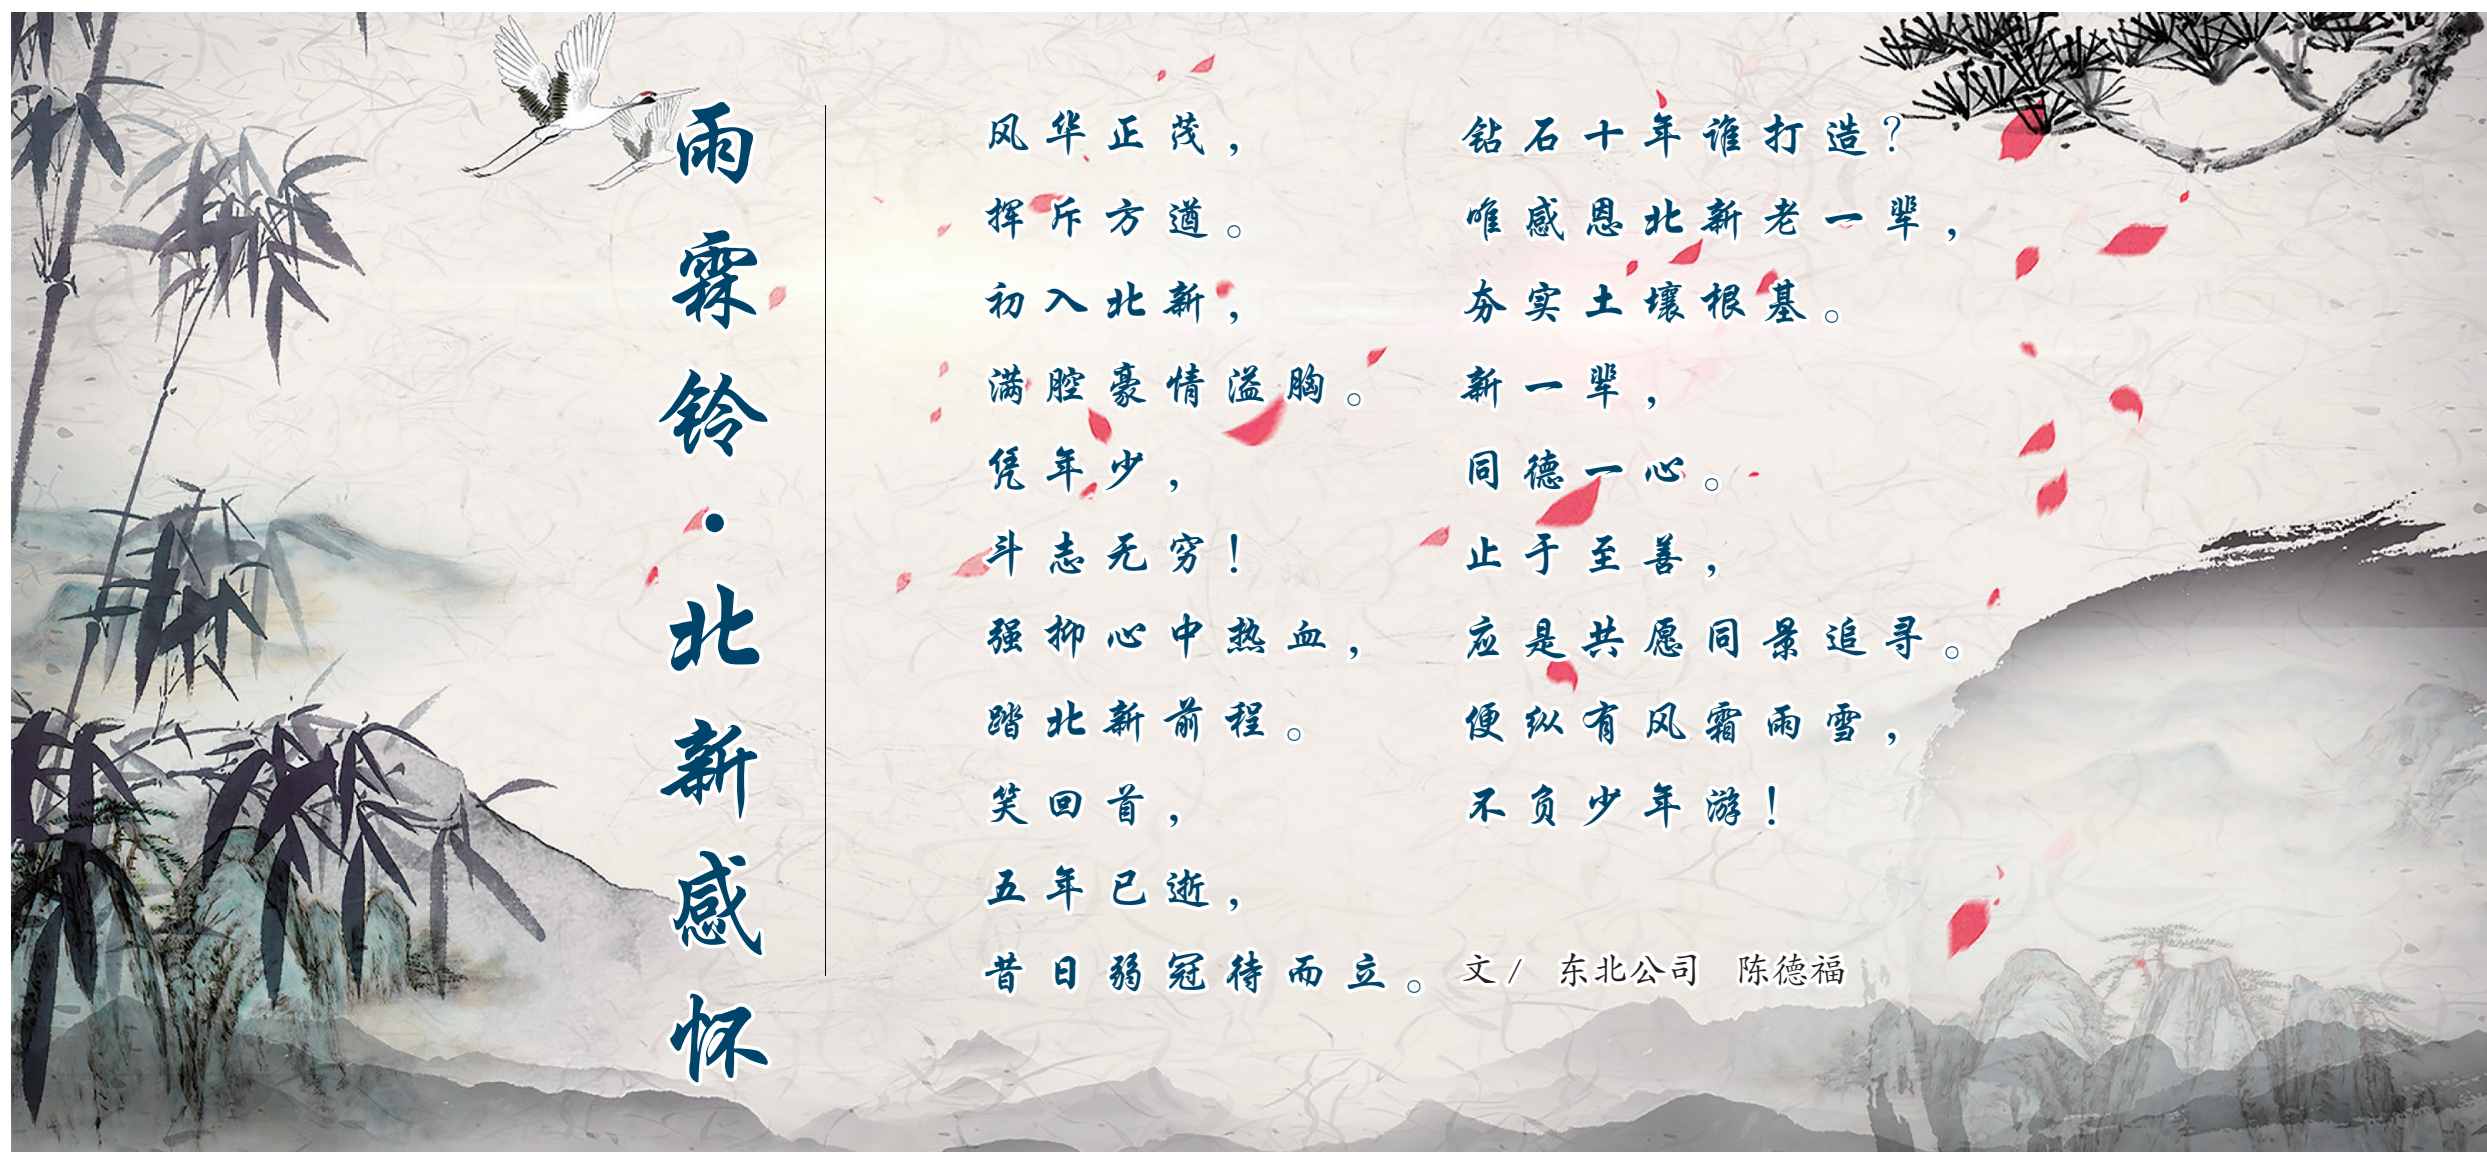 雨霖铃·北新感怀
风华正茂，
挥斥方遒。
初入北新，
满腔豪情溢胸。
凭年少，
斗志无穷！
强抑心中热血，
踏北新前程。
笑回首，
五年已逝，
昔日弱冠待而立。
钻石十年谁打造？
唯感恩北新老一辈，
夯实土壤根基。
新一辈，
同德一心。
止于至善，
应是共愿同景追寻。
便纵有风霜雨雪，
不负少年游！
文/ 东北公司 陈德福